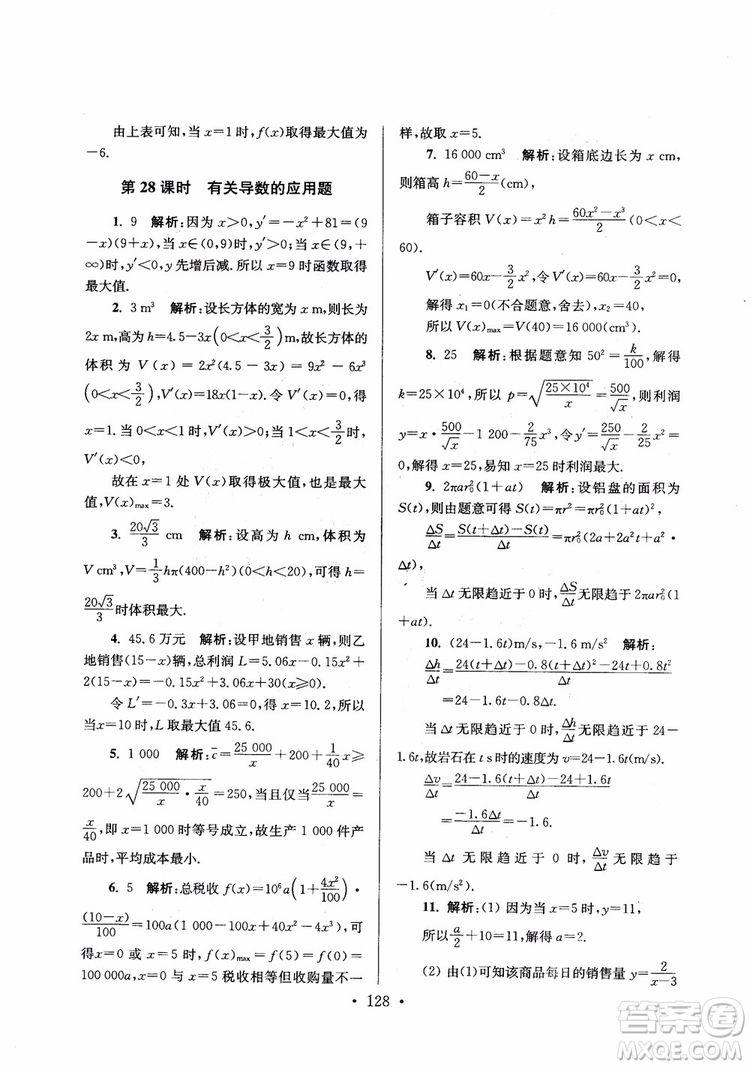 由上表可知,当 x=1 时,f(x)取得最大值为
-6.
第 28 课时 有关导数的应用题
1. 9 解析:因为 x>0,y′=-x²+81=(9
-x)(9+x),当 x∈(0,9)时,y′>0;当 x∈(9,+
∞)时,y′<0,y 先增后减.所以 x=9 时函数取得
最大值.
2. 3 m³ 解析:设长方体的宽为 x m,则长为
2x m,高为 h=4.5-3x(0<x<3/2)m,故长方体的
体积为 V(x)=2x²(4.5-3x)=9x²-6x³
(0<x<3/2),V′(x)=18x(1-x).令 V′(x)=0,得
x=1.当 0<x<1 时,V′(x)>0;当 1<x<3/2 时,
V′(x)<0,
故在 x=1 处 V(x)取得极大值,也是最大
值,V(x)max=3.
3. 20√3/3 cm 解析:设高为 h cm,体积为
V cm³,V=1/3 hπ(400-h²)(0<h<20),可得 h=
20√3/3 时体积最大.
4. 45.6 万元 解析:设甲地销售 x 辆,则乙
地销售(15-x)辆,总利润 L=5.06x-0.15x²+
2(15-x)=-0.15x²+3.06x+30(x≥0).
令 L′=-0.3x+3.06=0,得 x=10.2.所以
当x=10 时,L 取最大值 45.6.
5. 1 000 解析:c̄=25 000/x+200+1/40 x≥
200+2√(25 000/x·x/40)=250,当且仅当25 000/x=
x/40,即 x=1 000 时等号成立,故生产 1 000 件产
品时,平均成本最小.
6. 5 解析:总税收 f(x)=10⁶a(1+4x²/100)
(10-x)/100=100a(1 000-100x+40x²-4x³),可
得x=0 或 x=5 时,f(x)max=f(5)=f(0)=
100 000a,x=0 与 x=5 税收相等但收购量不一
样,故取 x=5.
7. 16 000 cm³ 解析:设箱底边长为 x cm,
则箱高 h=(60-x)/2(cm),
箱子容积 V(x)=x²h=(60x²-x³)/2(0<x<
60).
V′(x)=60x-3/2x² 令 V′(x)=60x-3/2x²=0,
解得 x₁=0(不合题意,舍去),x₂=40,
所以 V(x)max=V(40)=16 000.
8. 25 解析:根据题意知 50²=k/100,解得
k=25×10⁴,所以 p=√(25×10⁴/x)=500/√x,则利润
y=x·500/√x-1 200-2/75x³,令 y′=250/√x-2/25x²=
0,解得 x=25,易知 x=25 时利润最大.
9. 2πar₀²(1+at) 解析:设铝盘的面积为
S(t),则由题意可得 S(t)=πr²=πr₀²(1+at)²,
ΔS/Δt=(S(t+Δt)-S(t))/Δt=πr₀²(2a+2a²t+
a²Δt),
当 Δt 无限趋近于 0 时,ΔS/Δt无限趋近于 2πar₀²(1+
at).
10. (24-1.6t)m/s,-1.6m/s² 解析:
Δh/Δt=(24(t+Δt)-0.8(t+Δt)²-24t+0.8t²)/Δt
=24-1.6t-0.8Δt.
当 Δt 无限趋近于 0 时,Δh/Δt无限趋近于 24-
1.6t,故岩石在 t s 时的速度为 v=24-1.6t(m/s).
Δv/Δt=(24-1.6(t+Δt)-24+1.6t)/Δt
=-1.6Δt/Δt=-1.6.
当 Δt 无限趋近于 0 时,Δv/Δt无限趋于
-1.6(m/s²).
11. 解析:(1) 因为当 x=5 时,y=11,
所以a/2+10=11,解得 a=2.
(2) 由(1)可知该商品每日的销售量 y=2/(x-3)
· 128 ·
答案圈
MXQE.COM